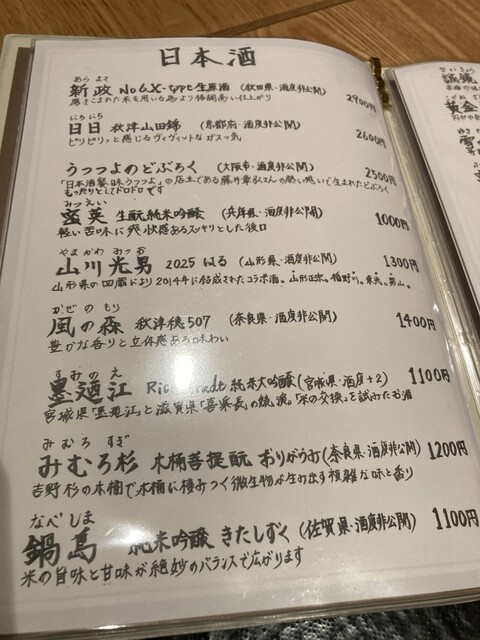 日本酒
あらまさ
新政 No6.X-type生原酒 (秋田県・酒度非公開) 2900円
磨きこまれた米を用いる為より格調高い仕上がり
にちにち
日日 秋津山田錦 (京都府・酒度非公開) 2600円
ピリピリッと感じるヴィヴィットなガスッ気
うつつよのどぶろく (大阪市・酒度非公開) 2500円
「日本酒餐味うつつよ」の店主である藤井章弘さんの熱い想いで生まれたどぶろく
もったりとしてドロドロです
みつえい
蜜英 生酛純米吟醸 (兵庫県・酒度非公開) 1000円
軽い苦味に爽快感あるスッキリとした後口
やまかわ みつお
山川光男 2025 はる (山形県・酒度非公開) 1300円
山形県の四蔵により2014年に結成されたコラボ酒。山形正宗。楯野川。東光。男山。
かぜのもり
風の森 秋津穂507 (奈良県・酒度非公開) 1400円
豊かな香りと立体感ある味わい
すみのえ
墨廼江 Rice 純米大吟醸(宮城県・酒度+2) 1100円
宮城県「墨廼江」と滋賀県「喜楽長」の競演。「米の交換」を試みたお酒
みむろ すぎ
みむろ杉 木桶菩提酛 おりがらみ(奈良県・酒度非公開) 1200円
吉野杉の木桶で木桶に棲みつく微生物が生み出す複雑な味と香り
なべしま
鍋島 純米吟醸 きたしずく (佐賀県・酒度非公開) 1100円
米の旨味と甘味が絶妙のバランスで広がります
黄金